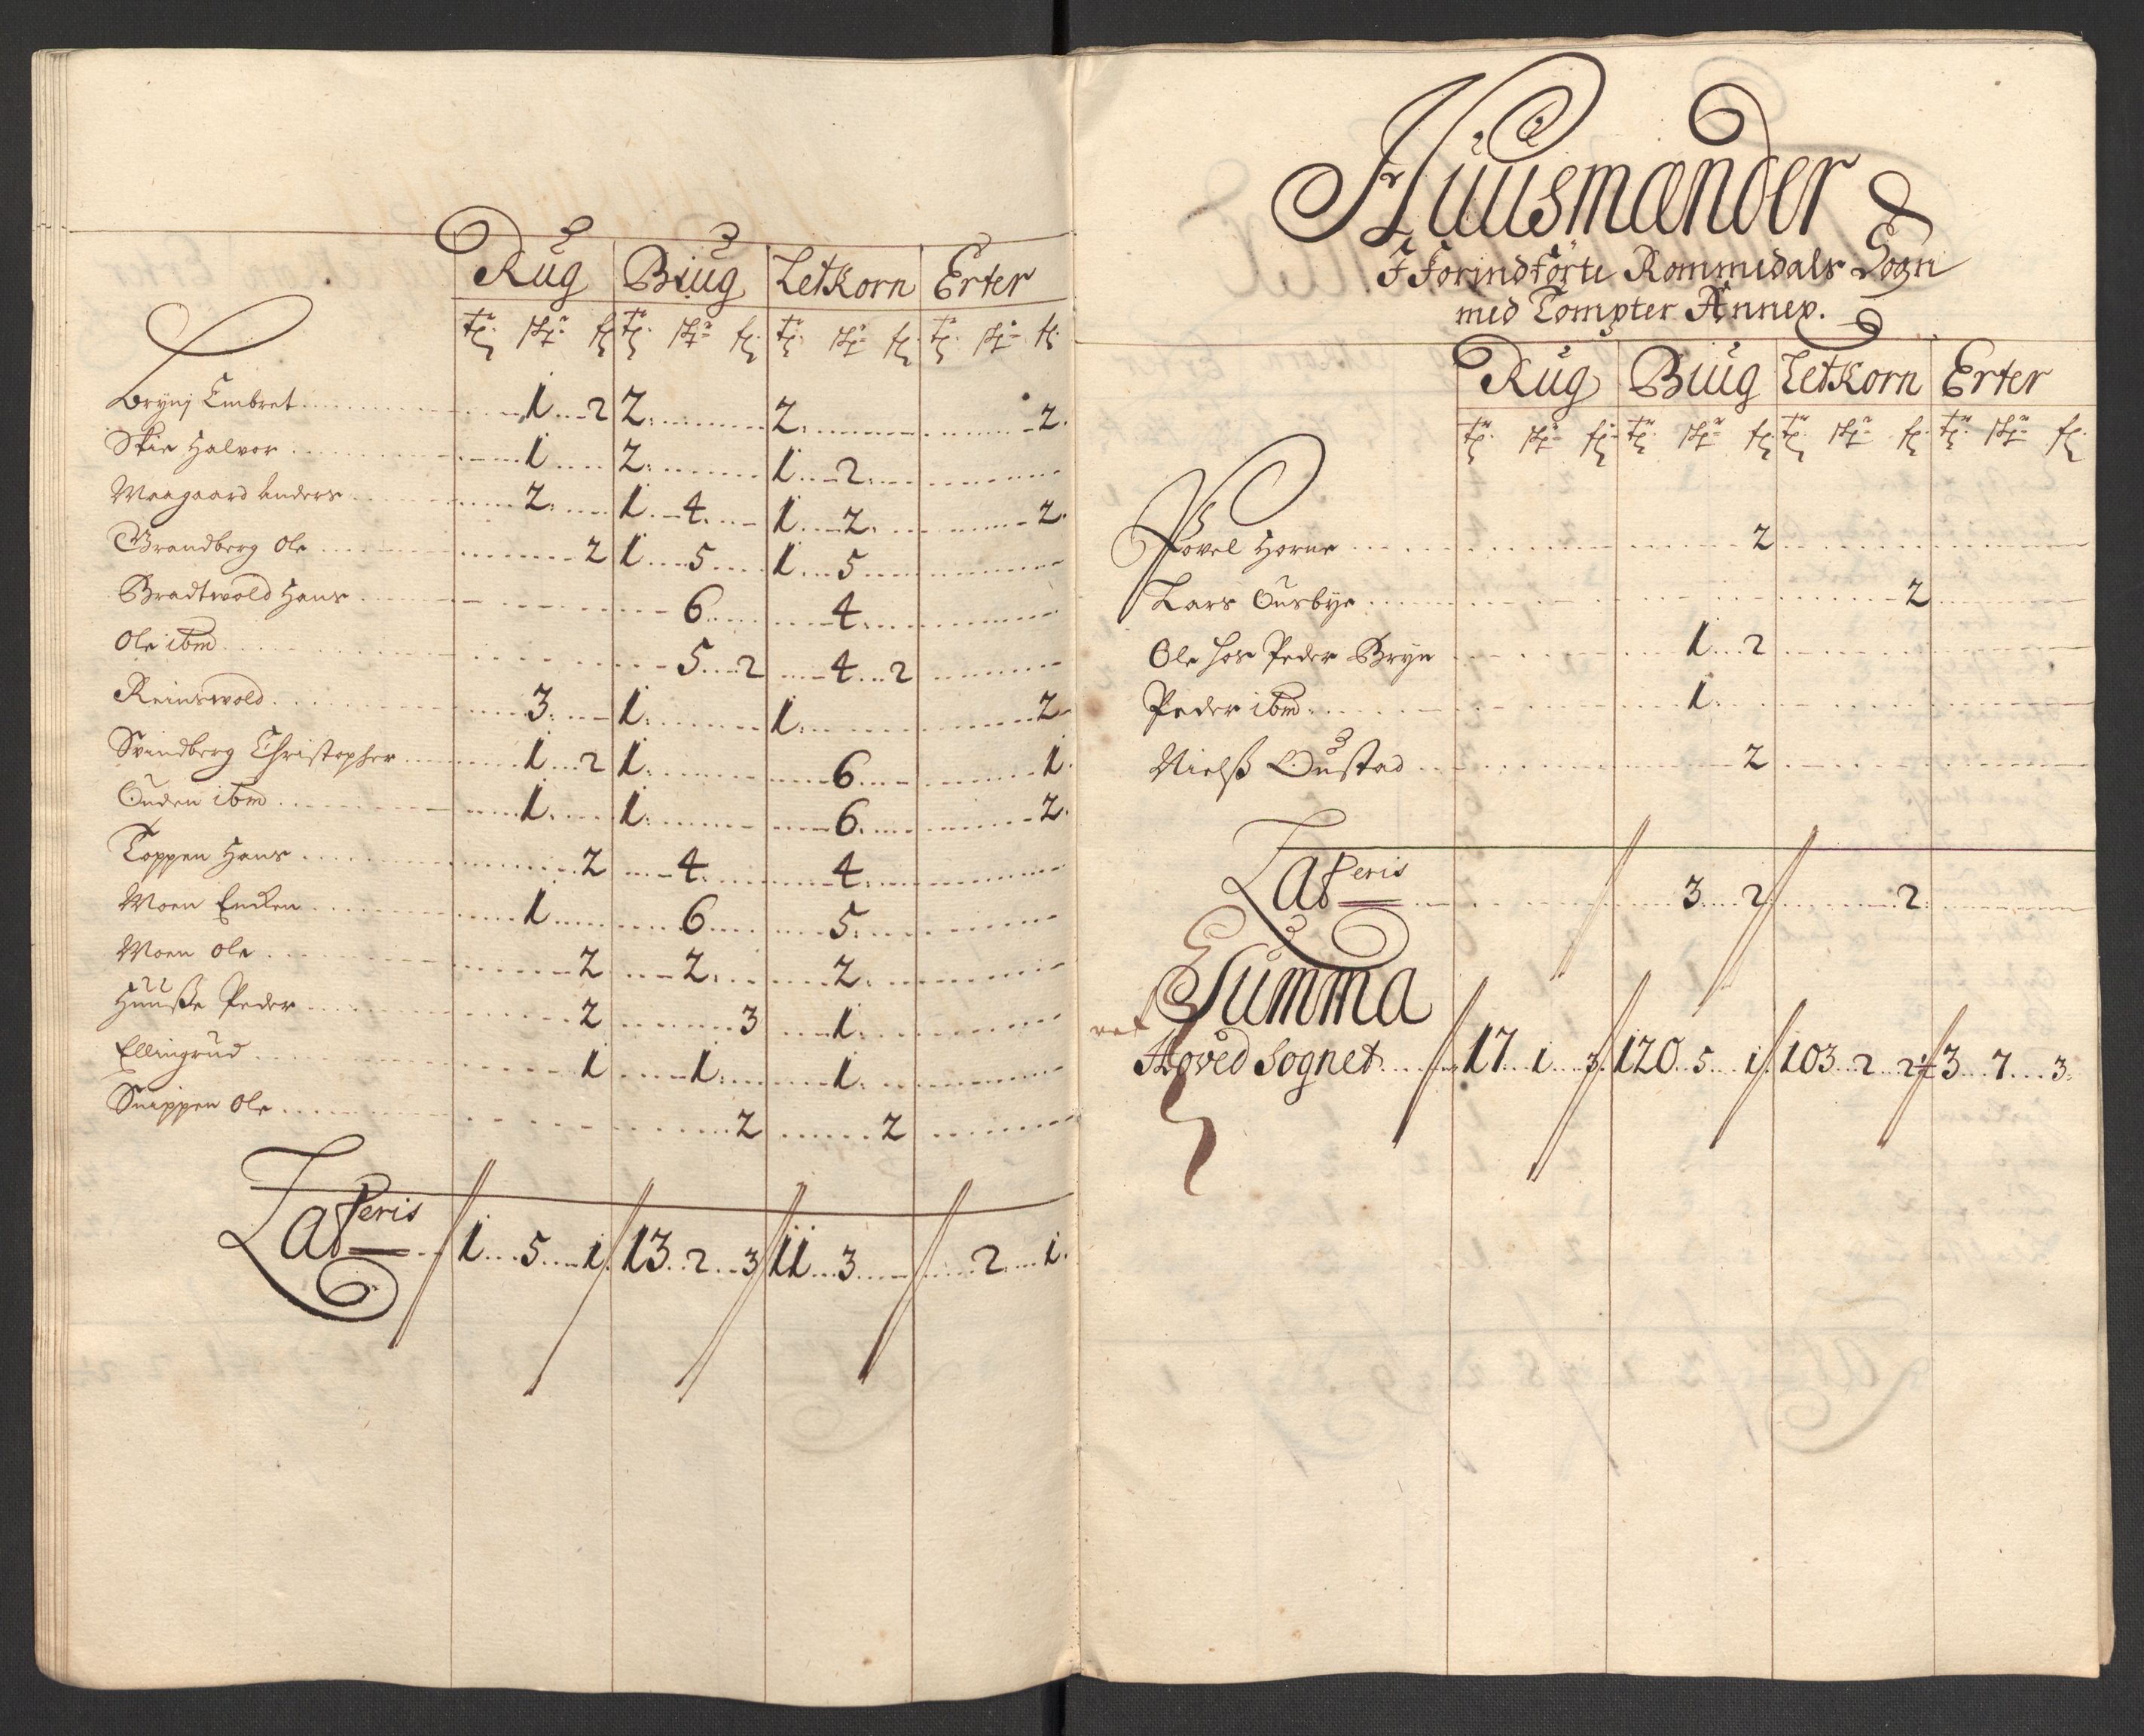 Rug Biug Letkorn Erter
tr. skp. fl. tr. skp. fl. tr. skp. fl. tr. skp. fl.
Brynj Embret 1 2 2 2 2
Skie Halvor 1 2 1 2
Maagaard Anders 2 1 4 1 2 2
Brandberg Ole 2 1 5 1 5
Bradtvold Hans 6 4
Ole ibm 5 2 4 2
Reinsvold 3 1 1 2
Svindberg Christopher 1 2 1 6 1
Ouden ibm 1 1 6 2
Toppen Hans 2 4 4
Moen 1 6 5
Moen Ole 2 2 2
Huuße Peder 2 3 1
Ellingrud 1 1 1
Snippen Ole 2 2
Lateris 1 5 1 13 2 3 11 3 2 1
Huusmænder
I Forindförte Rommedals Sogn
med Tompter Annex.
Rug Biug Letkorn Erter
tr. skp. fl. tr. skp. fl. tr. skp. fl. tr. skp. fl.
Povel Horne 2
Lars Ousbye 2
Ole hos Peder Bryn 1 2
Peder ibm 1
Nielß Oustad 2
Lateris 3 2 2
Summa
Hoved Sognet 17 1 3 120 5 1 103 2 2 3 7 3